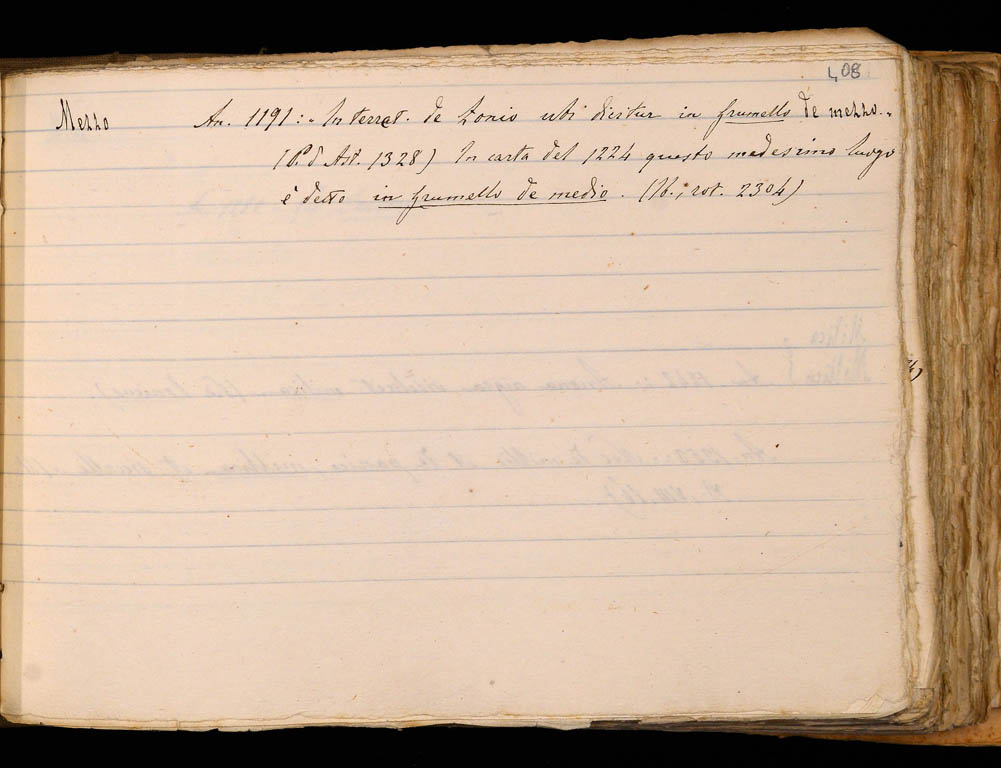 408
Mezzo An. 1191: "In terrat. de Zonio ubi dicitur in frumello de mezzo."
(P. d Ast. 1328) In carta del 1224 questo medesimo luogo
è detto in frumello de medio. (Ib., rot. 2304)